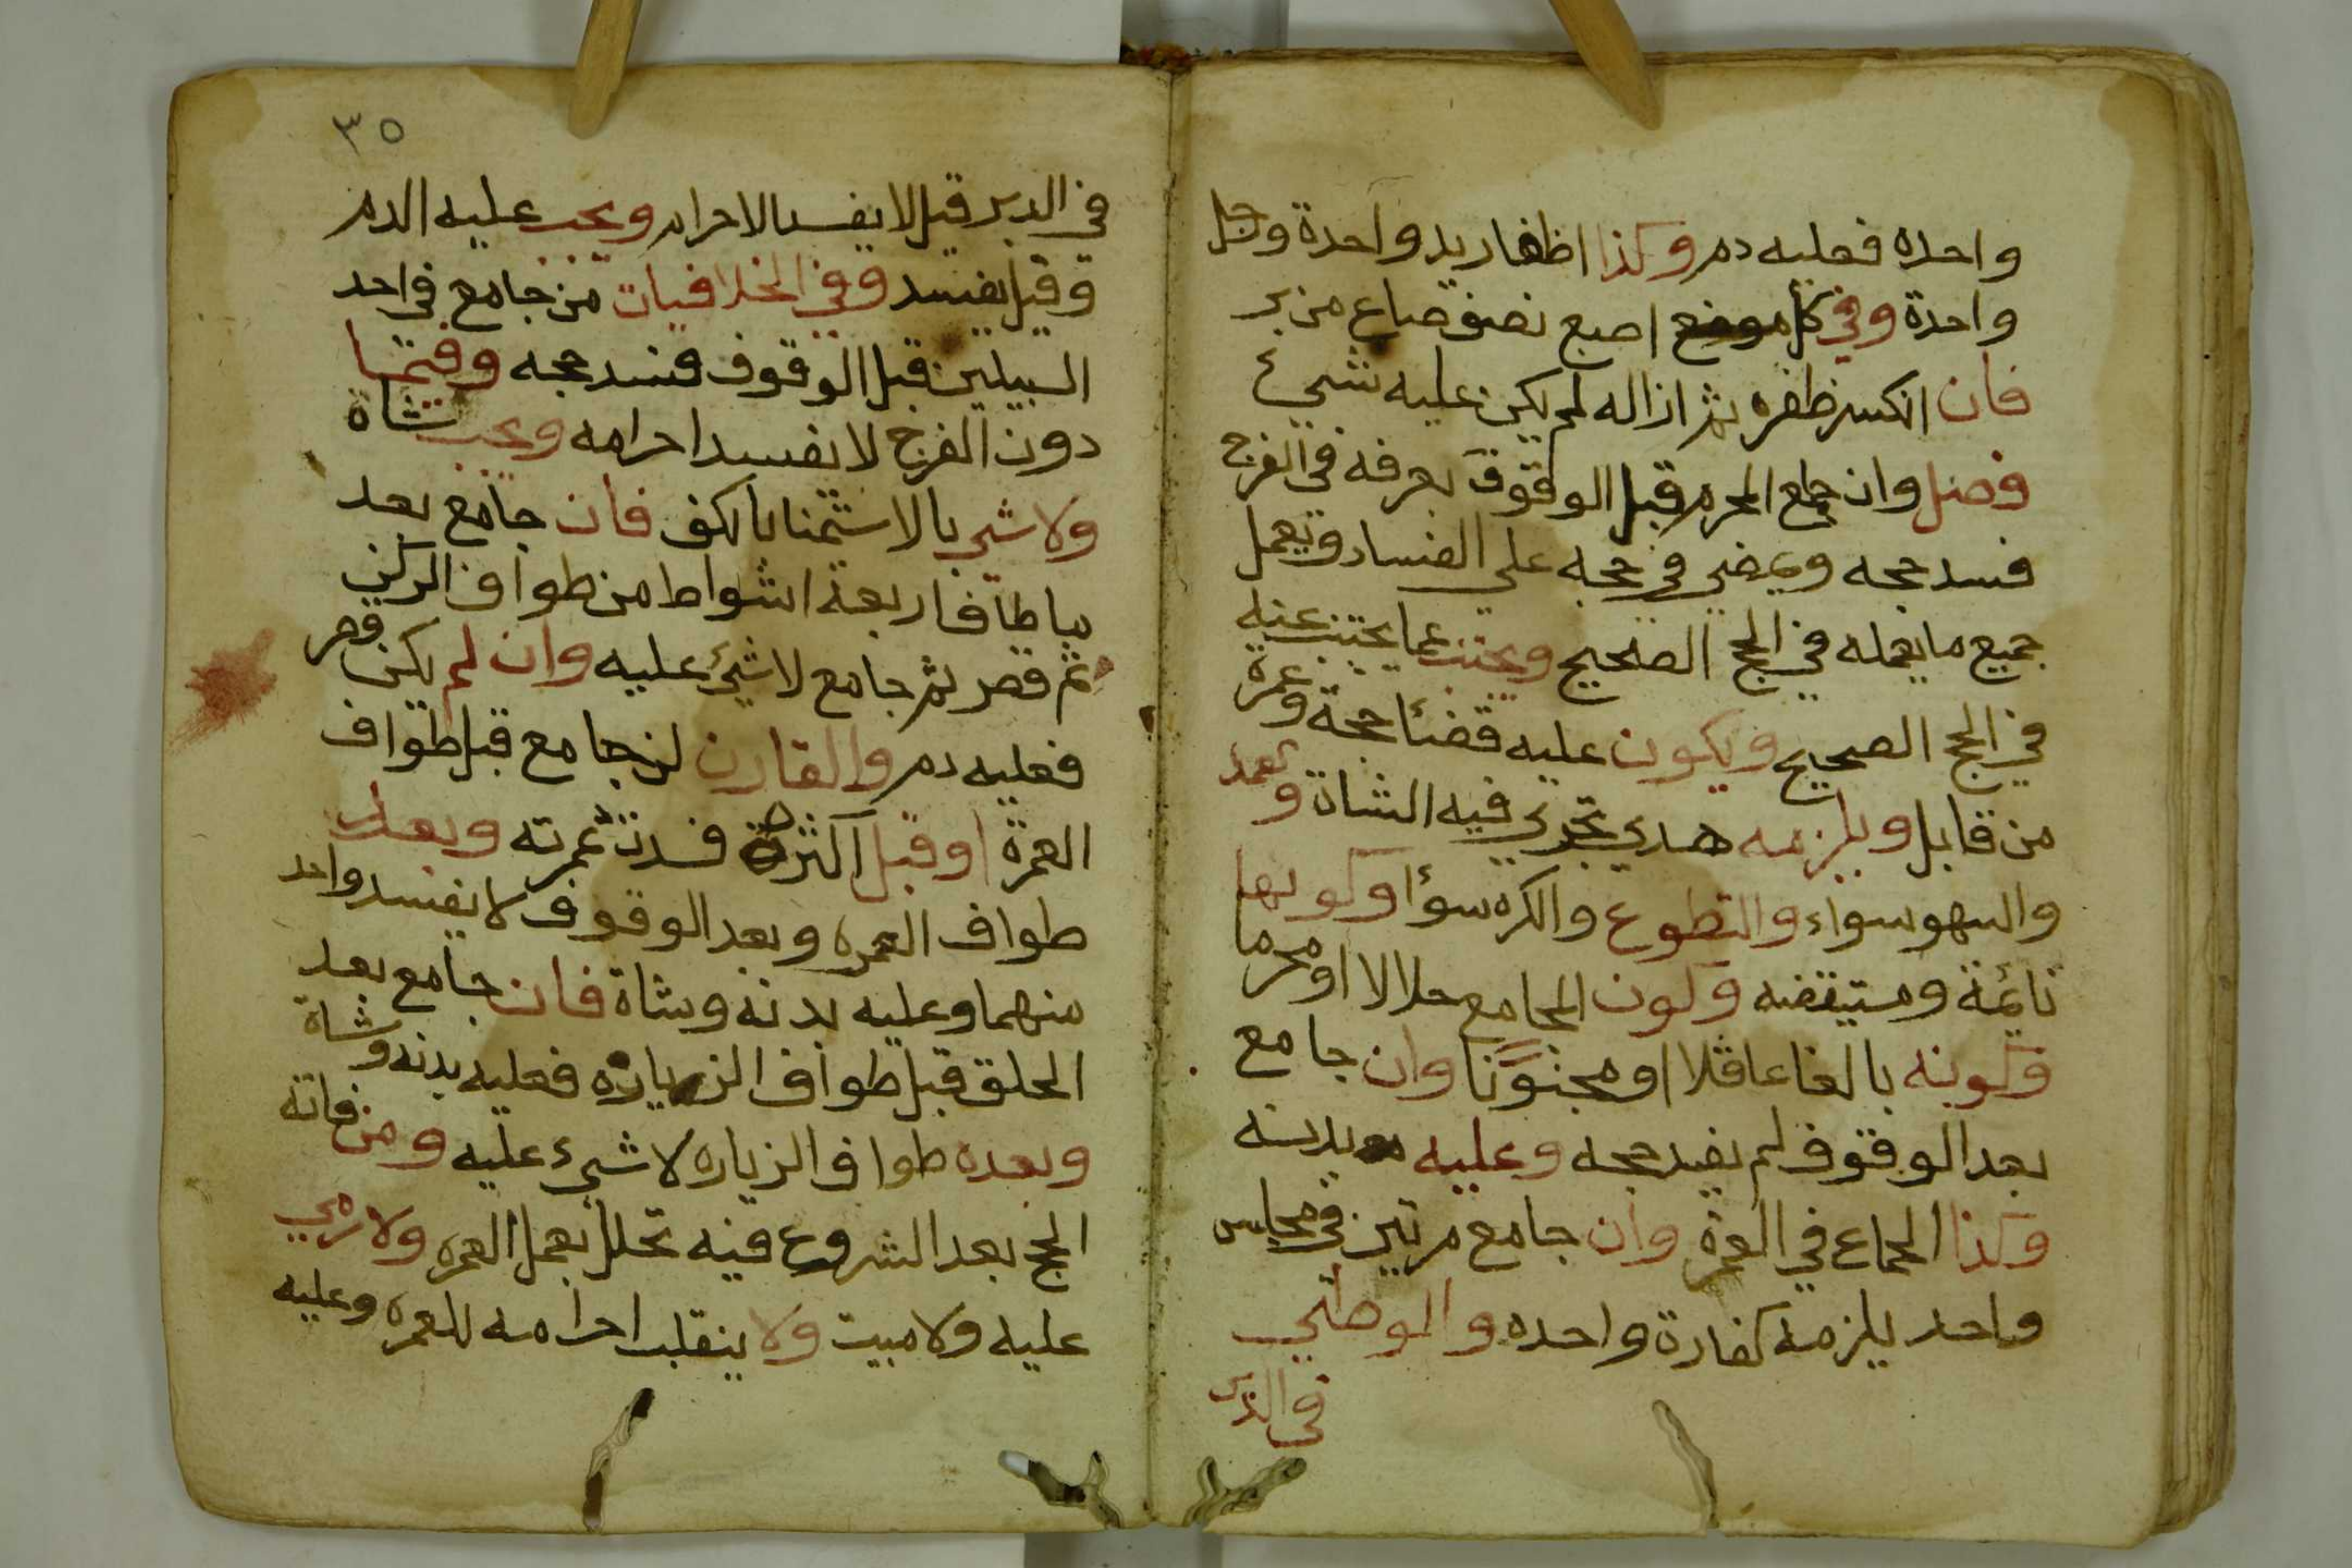 واحده فعليه دم وكذا اظفار يد واحدة ورجل
واحدة وفي كل موضع اصبع نصف صاع من بر
فان انكسر ظفره ثم ازاله لم يكن عليه شيئ
فصل وان جامع المحرم قبل الوقوف بعرفه في الفرج
فسد حجه ويمضي في حجه على الفساد ويعمل
جميع ما يعمله في الحج الصحيح ويجتنب عما يجتنب عنه
في الحج الصحيح ويكون عليه قضئا حجة وعمرة
من قابل ويلزمه هدي تجزي فيه الشاة وتعمد
والسهو سواء والتطوع والكره سوؤا وكونها
نائمة ومستيقضه وكون المجامع حلالا او محرما
وكونه بالغا عاقلا او مجنونا وان جامع
بعد الوقوف لم يفسد حجه وعليه بدنه
وكذا الجماع في العمرة وان جامع مرتين في مجلس
واحد يلزمه كفارة واحده والوطئي
في الدبر
٣٥
في الدبر قيل لا يفسد الاحرام ويجب عليه الدم
وقيل يفسد وفي الخلافيات من جامع في احد
السبيلين قبل الوقوف فسد حجه وفيما
دون الفرج لا يفسد احرامه ويجب شاة
ولا شي بالاستمنا بالكف فان جامع بعد
ما طاف اربعة اشواط من طواف الركن
ثم قصر ثم جامع لا شيئ عليه وان لم يكن قصر
فعليه دم والقارن لن جامع قبل طواف
العمرة او قبل اكثره فسدت عمرته وبعد
طواف العمره وبعد الوقوف لا يفسد واحد
منهما وعليه بدنه وشاة فان جامع بعد
الحلق قبل طواف الزياره فعليه بدنه وشاة
وبعده طواف الزياره لا شيء عليه ومن فاته
الحج بعد الشروع فيه تحلل بعمل العمره ولا رمي
عليه ولا مبيت ولا ينقلب احرامه للعمره وعليه